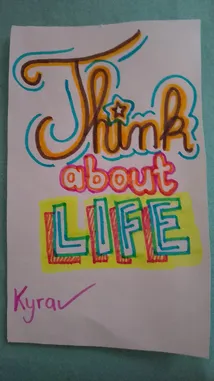 Think
about
LIFE
Kyra